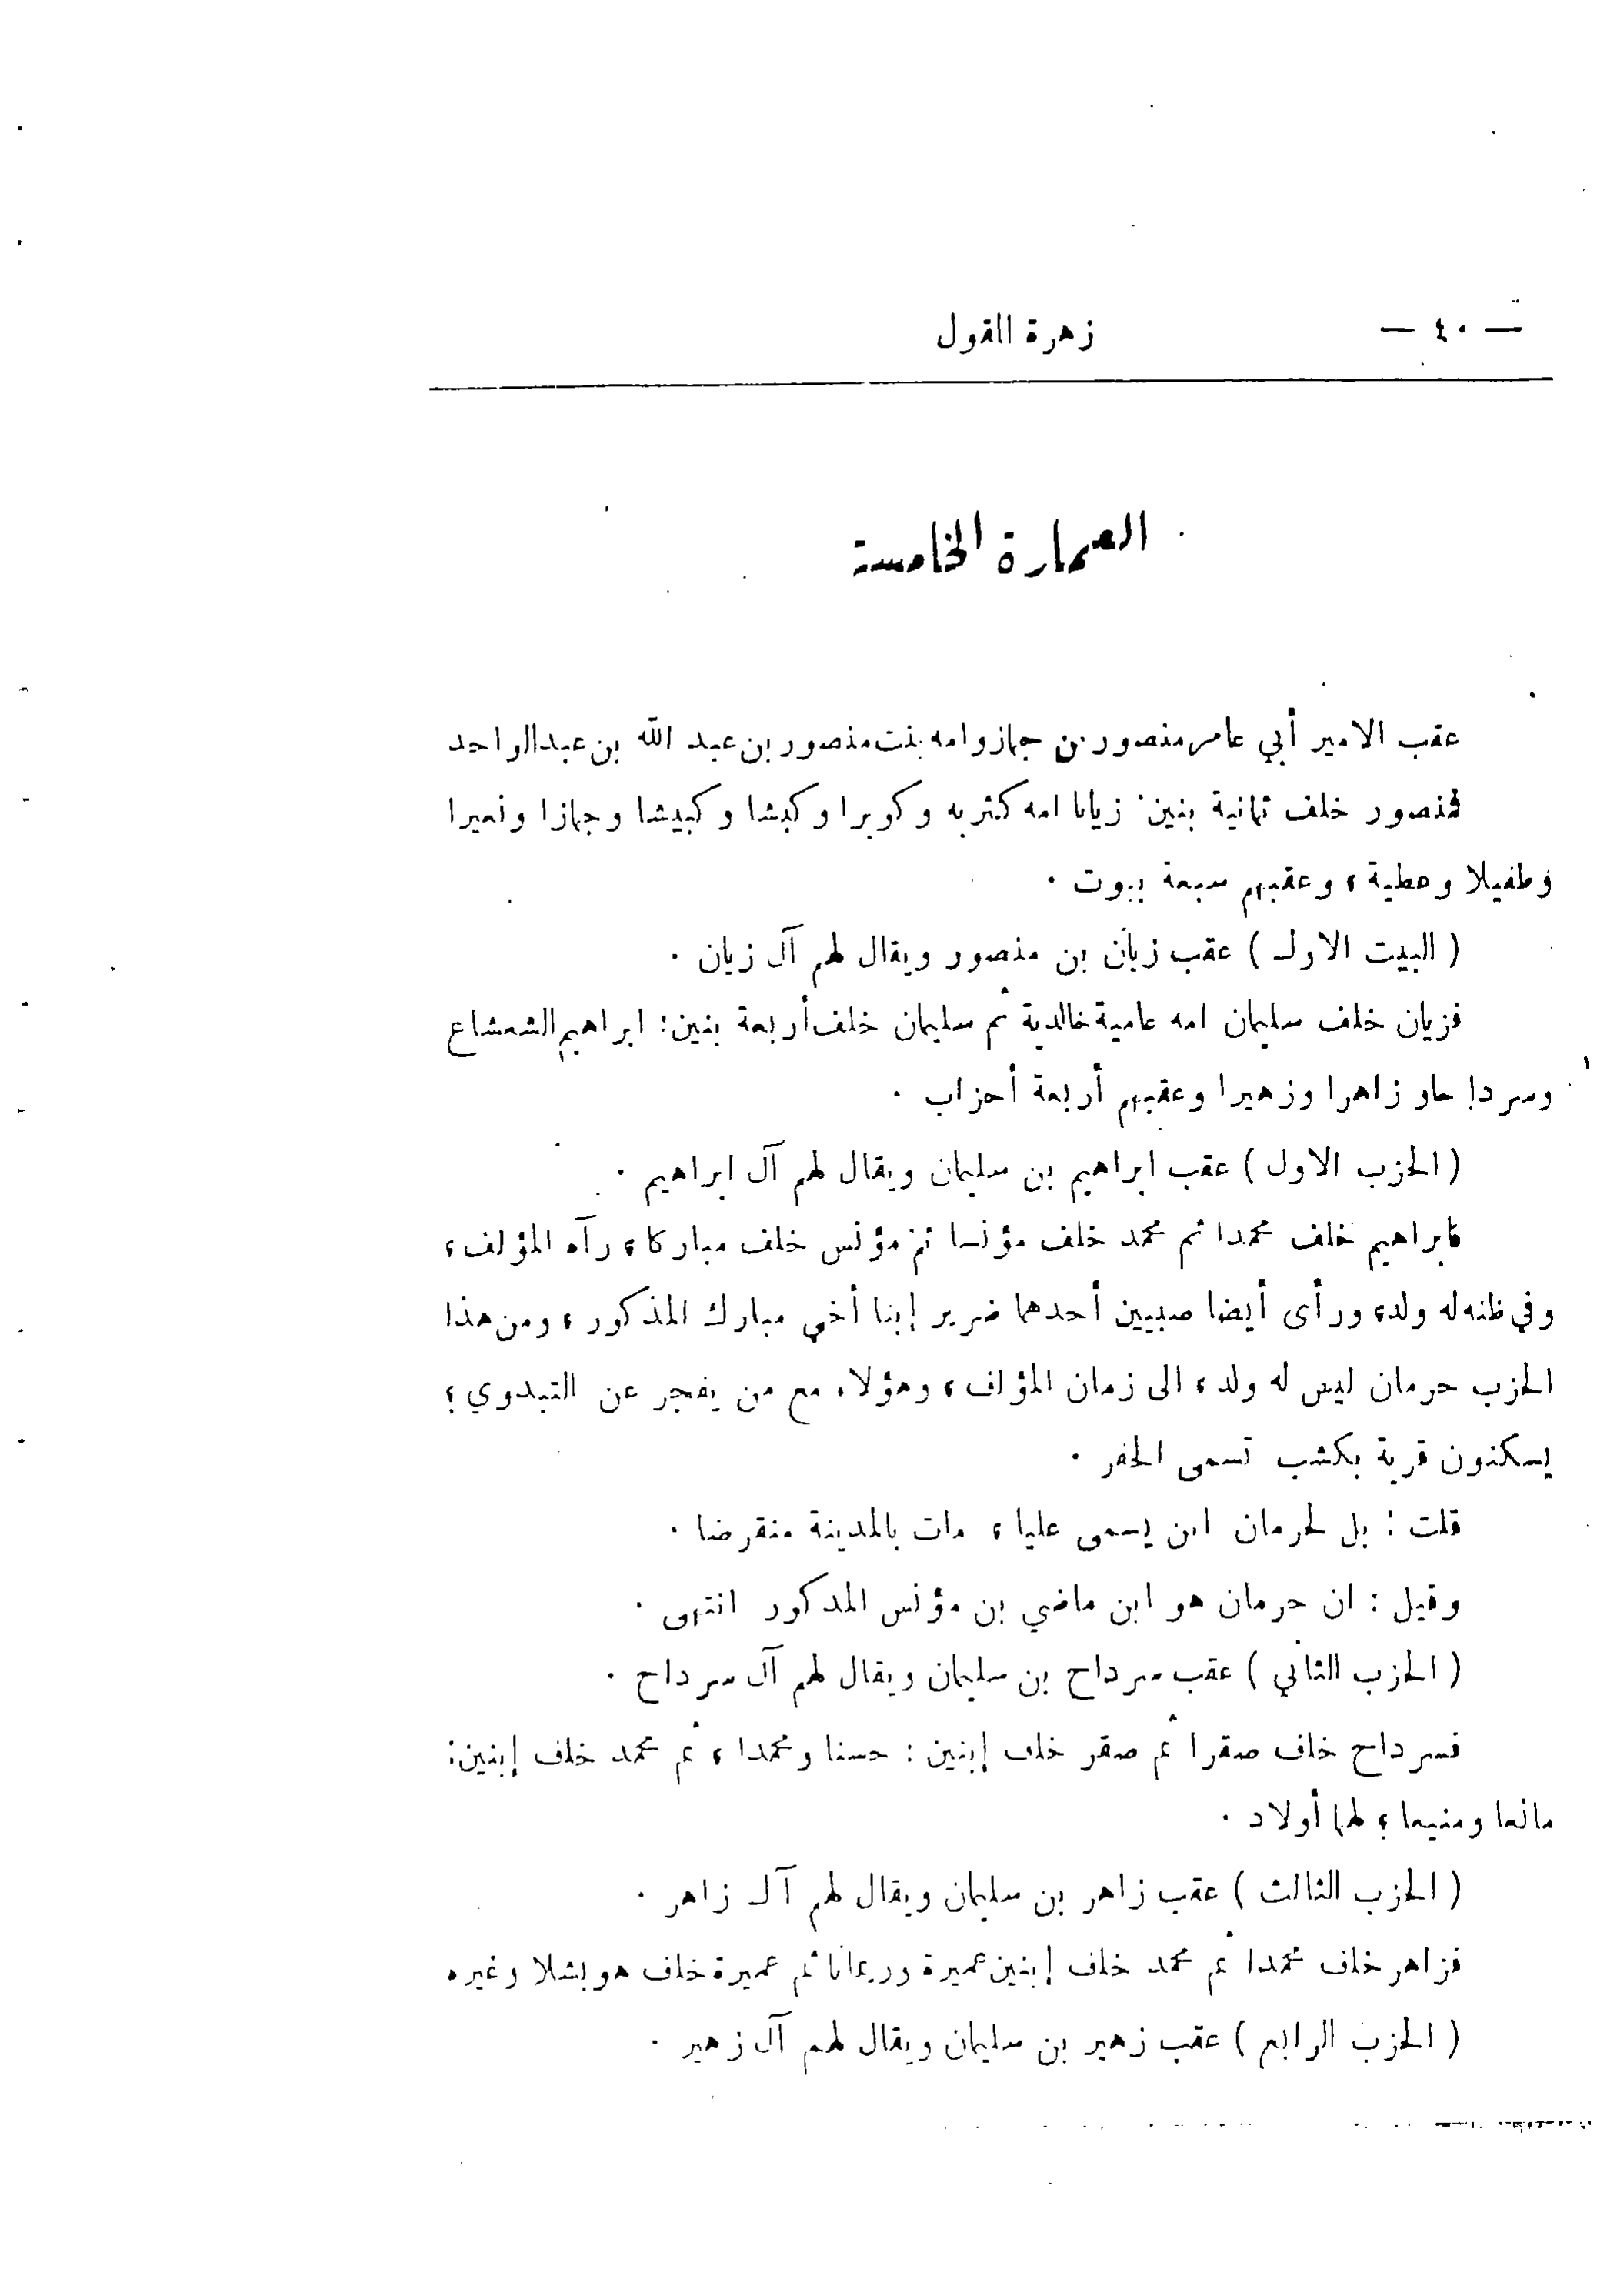 — ٤٠ — زهرة القول
العمارة الخامسة
عقب الامير أبي عامر منصور بن جماز وامه بنت منصور بن عبد الله بن عبد الواحد
فمنصور خلف ثمانية بنين: زيانا امه كثربه وكوبرا وكبشا وكبيشا وجمازا ونعيرا
وطفيلا وعطية، وعقبهم سبعة بيوت .
( البيت الاول ) عقب زيان بن منصور ويقال لهم آل زيان .
فزيان خلف سليمان امه عامية خالدية ثم سليمان خلف أربعة بنين: ابراهيم الشعشاع
وسردا حاو زاهرا وزهيرا وعقبهم أربعة أحزاب .
( الحزب الاول ) عقب ابراهيم بن سليمان ويقال لهم آل ابراهيم .
فابراهيم خلف محمدا ثم محمد خلف مؤنسا ثم مؤنس خلف مباركا، رآه المؤلف،
وفي ظنه له ولد، ورأى أيضا صبيين أحدهما ضرير إبنا أخي مبارك المذكور، ومن هذا
الحزب حرمان ليس له ولد، الى زمان المؤلف، وهؤلاء مع من يفجر عن التبدوي؛
يسكنون قرية بكشب تسمى الحفر .
قلت : بل لحرمان ابن يسمى عليا، مات بالمدينة منقرضا .
وقيل : ان حرمان هو ابن ماضي بن مؤنس المدكور انتهى .
( الحزب الثاني ) عقب سرداح بن سليمان ويقال لهم آل سرداح .
فسرداح خلف صقرا ثم صقر خلف إبنين : حسنا ومحمدا، ثم محمد خلف إبنين:
مانعا ومنيعا؛ لهما أولاد .
( الحزب الثالث ) عقب زاهر بن سليمان ويقال لهم آل زاهر .
فزاهر خلف محمدا ثم محمد خلف إبنين عميرة وريمانا ثم عميرة خلف هويشلا وغيره
( الحزب الرابع ) عقب زهير بن سليمان ويقال لهم آل زهير .